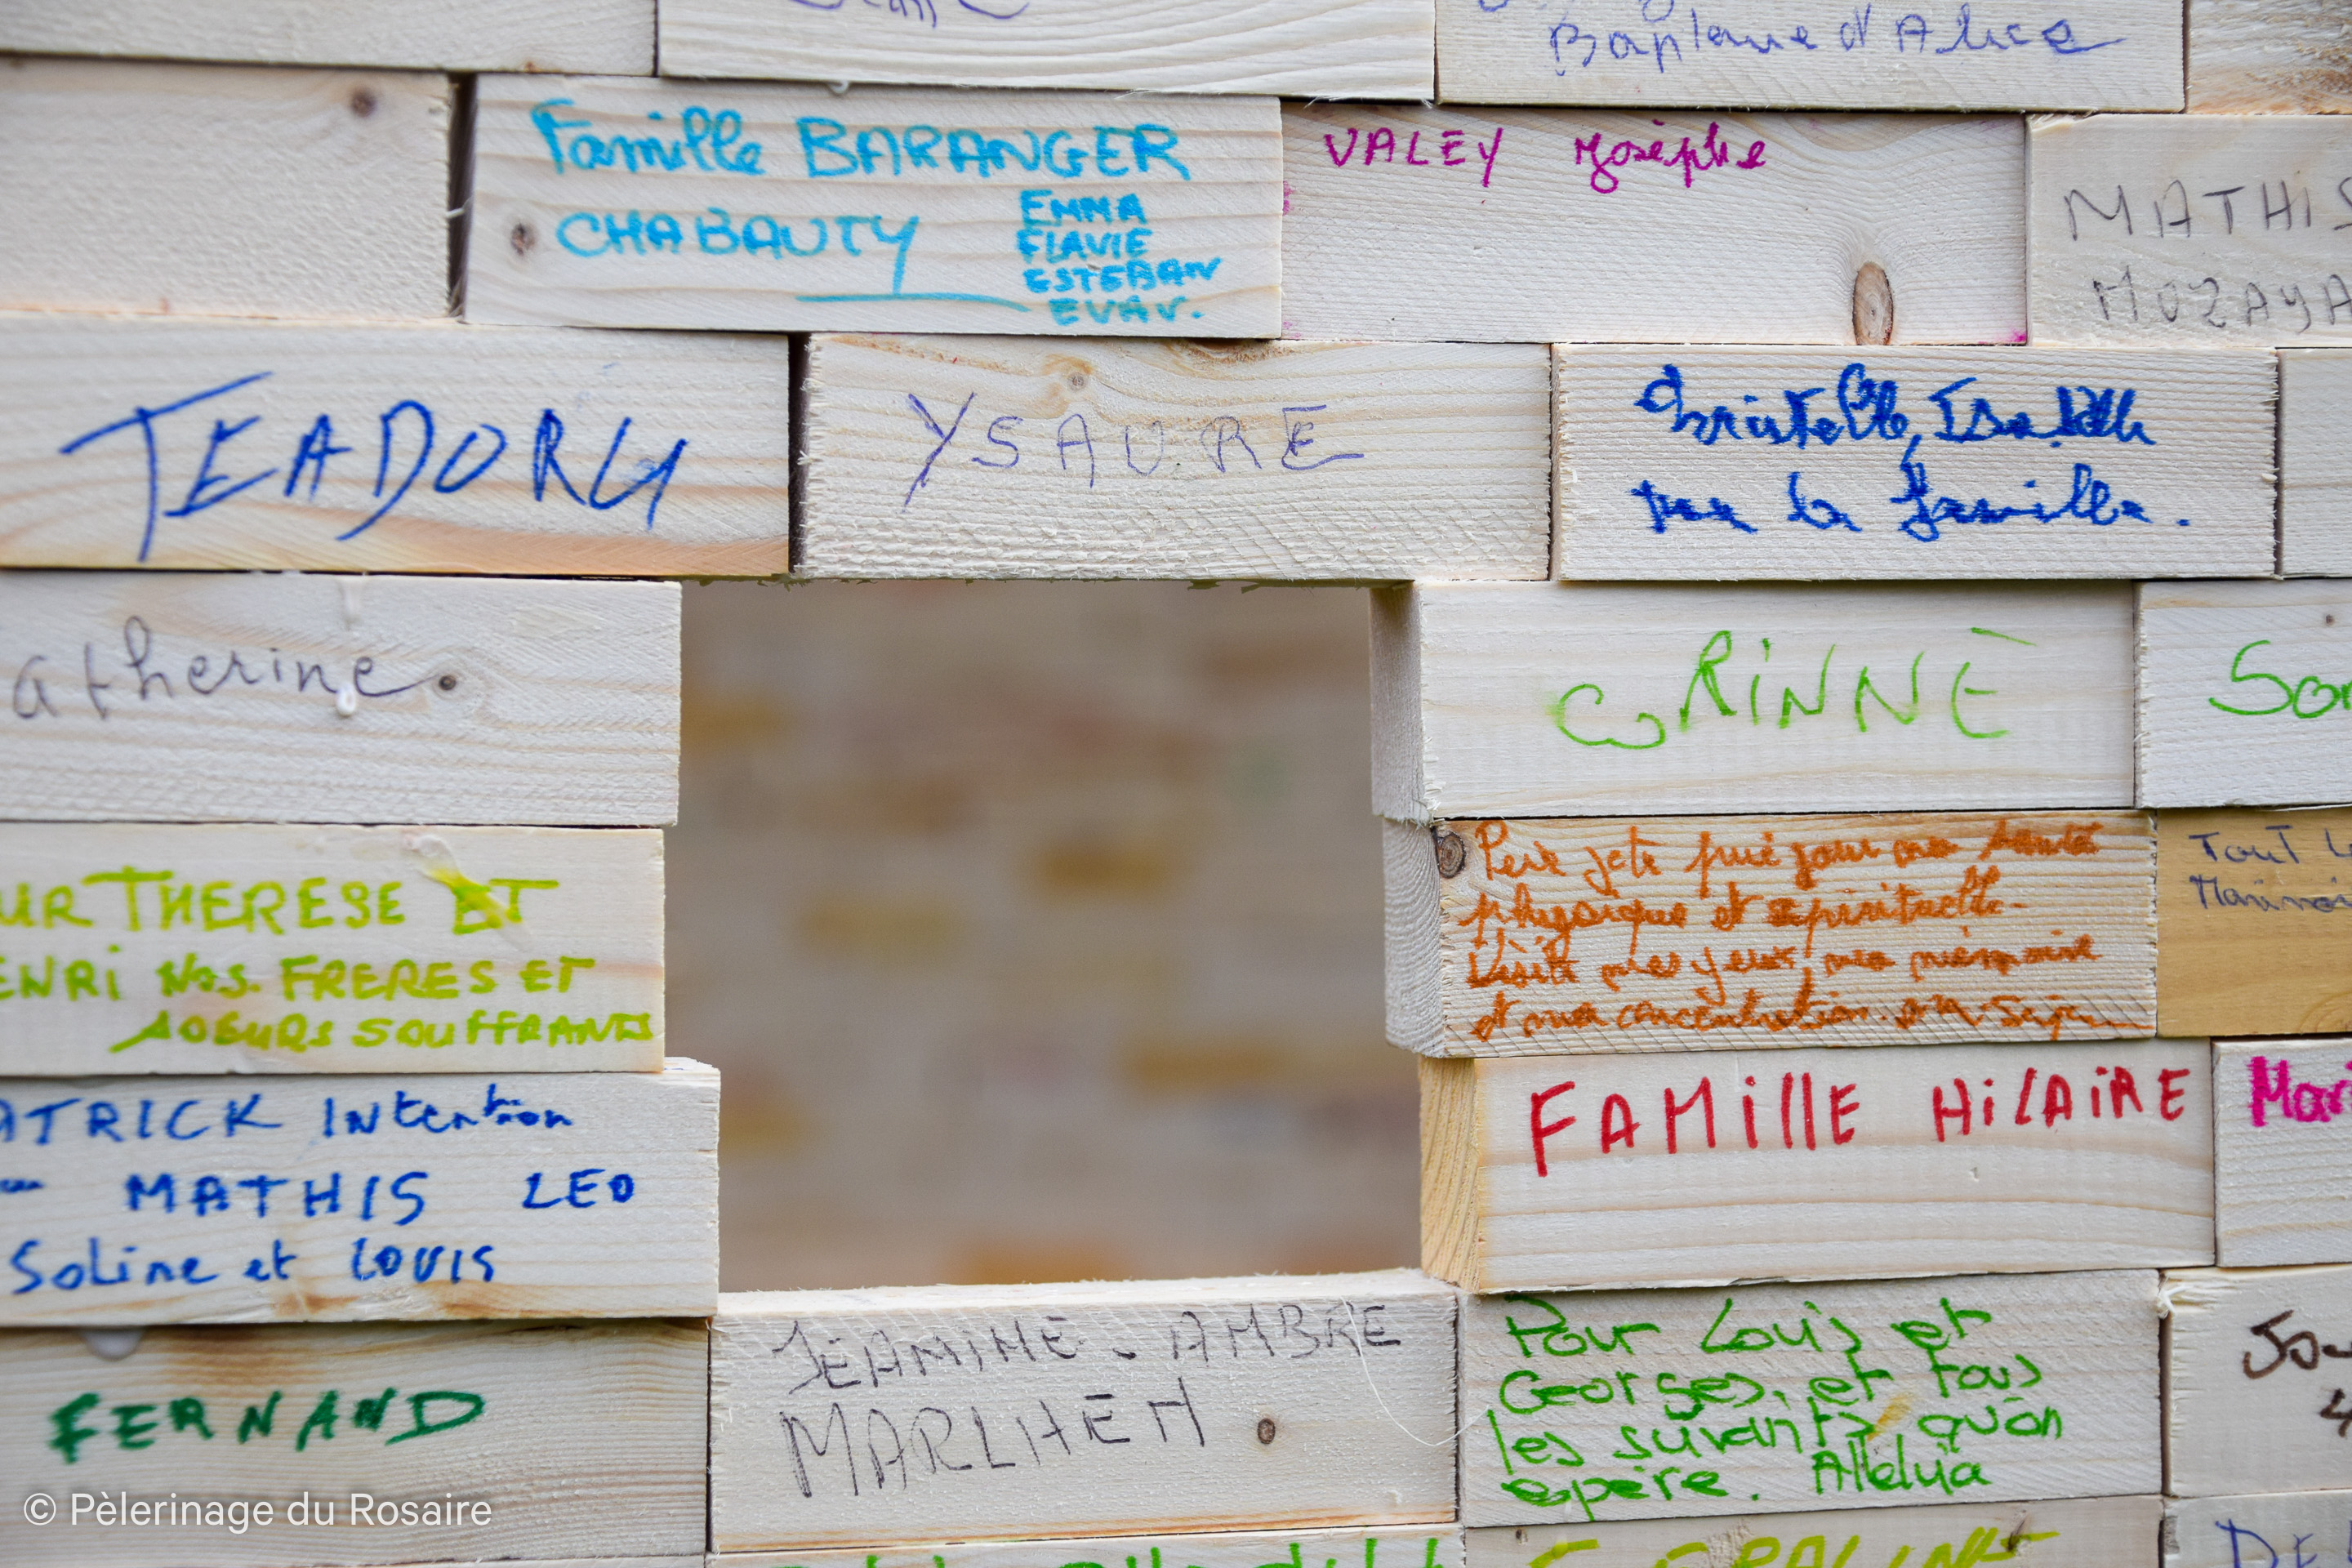 d'Alice
Famille BARANGER
CHABAUTY
EMMA
FLAVIE
ESTEBAN
EVAN.
VALEY Josèphe
MATHIS
MOZAYA
TEADORU
YSAURE
Christelle, Isabelle
pour la famille.
atherine
CORINNE
Sor
UR THERESE ET
ENRI NOS. FRERES ET
SOEURS SOUFFRANTS
Père je te prie pour ma santé
physique et spirituelle.
Visite mes yeux, ma mémoire
et ma concentration.
TOUT
ATRICK INtention
MATHIS LEO
Soline et LOUIS
FAMillE HiLAiRE
Mar
FERNAND
JEANINE - AMBRE
MARLHEN
Pour Louis et
Georges, et tous
les suivants qu'on
espère. Alleluia
Jou
4
DE
© Pèlerinage du Rosaire